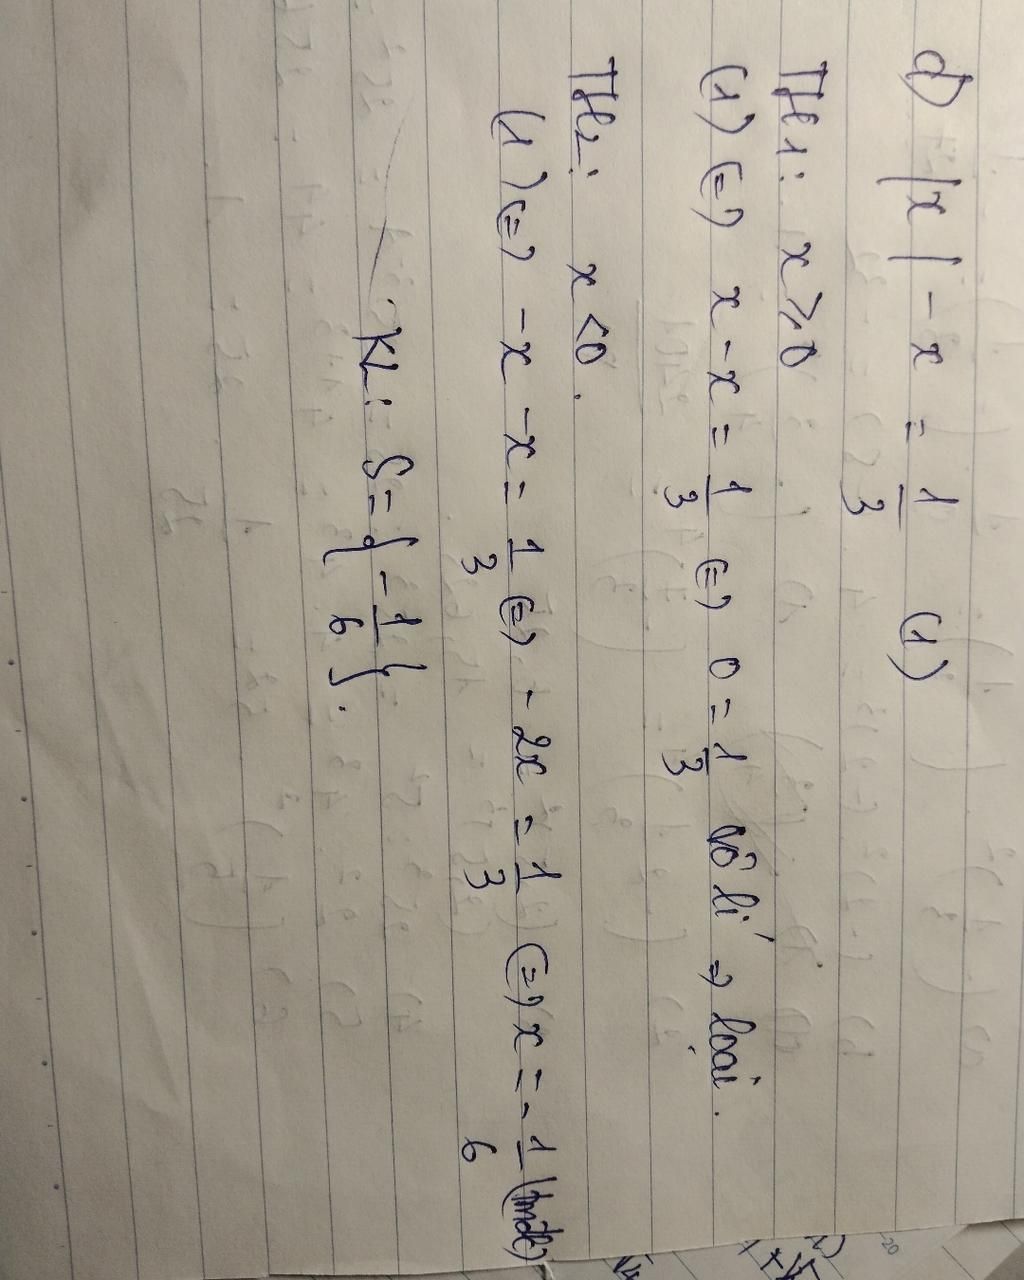 d) |x| - x = 1/3 (1)
TH1: x ≥ 0
(1) (=) x - x = 1/3 (=) 0 = 1/3 vô lí => loại.
TH2: x < 0.
(1) (=) -x - x = 1/3 (=) - 2x = 1/3 (=) x = - 1/6 (tmđk)
KL: S = { - 1/6 }.